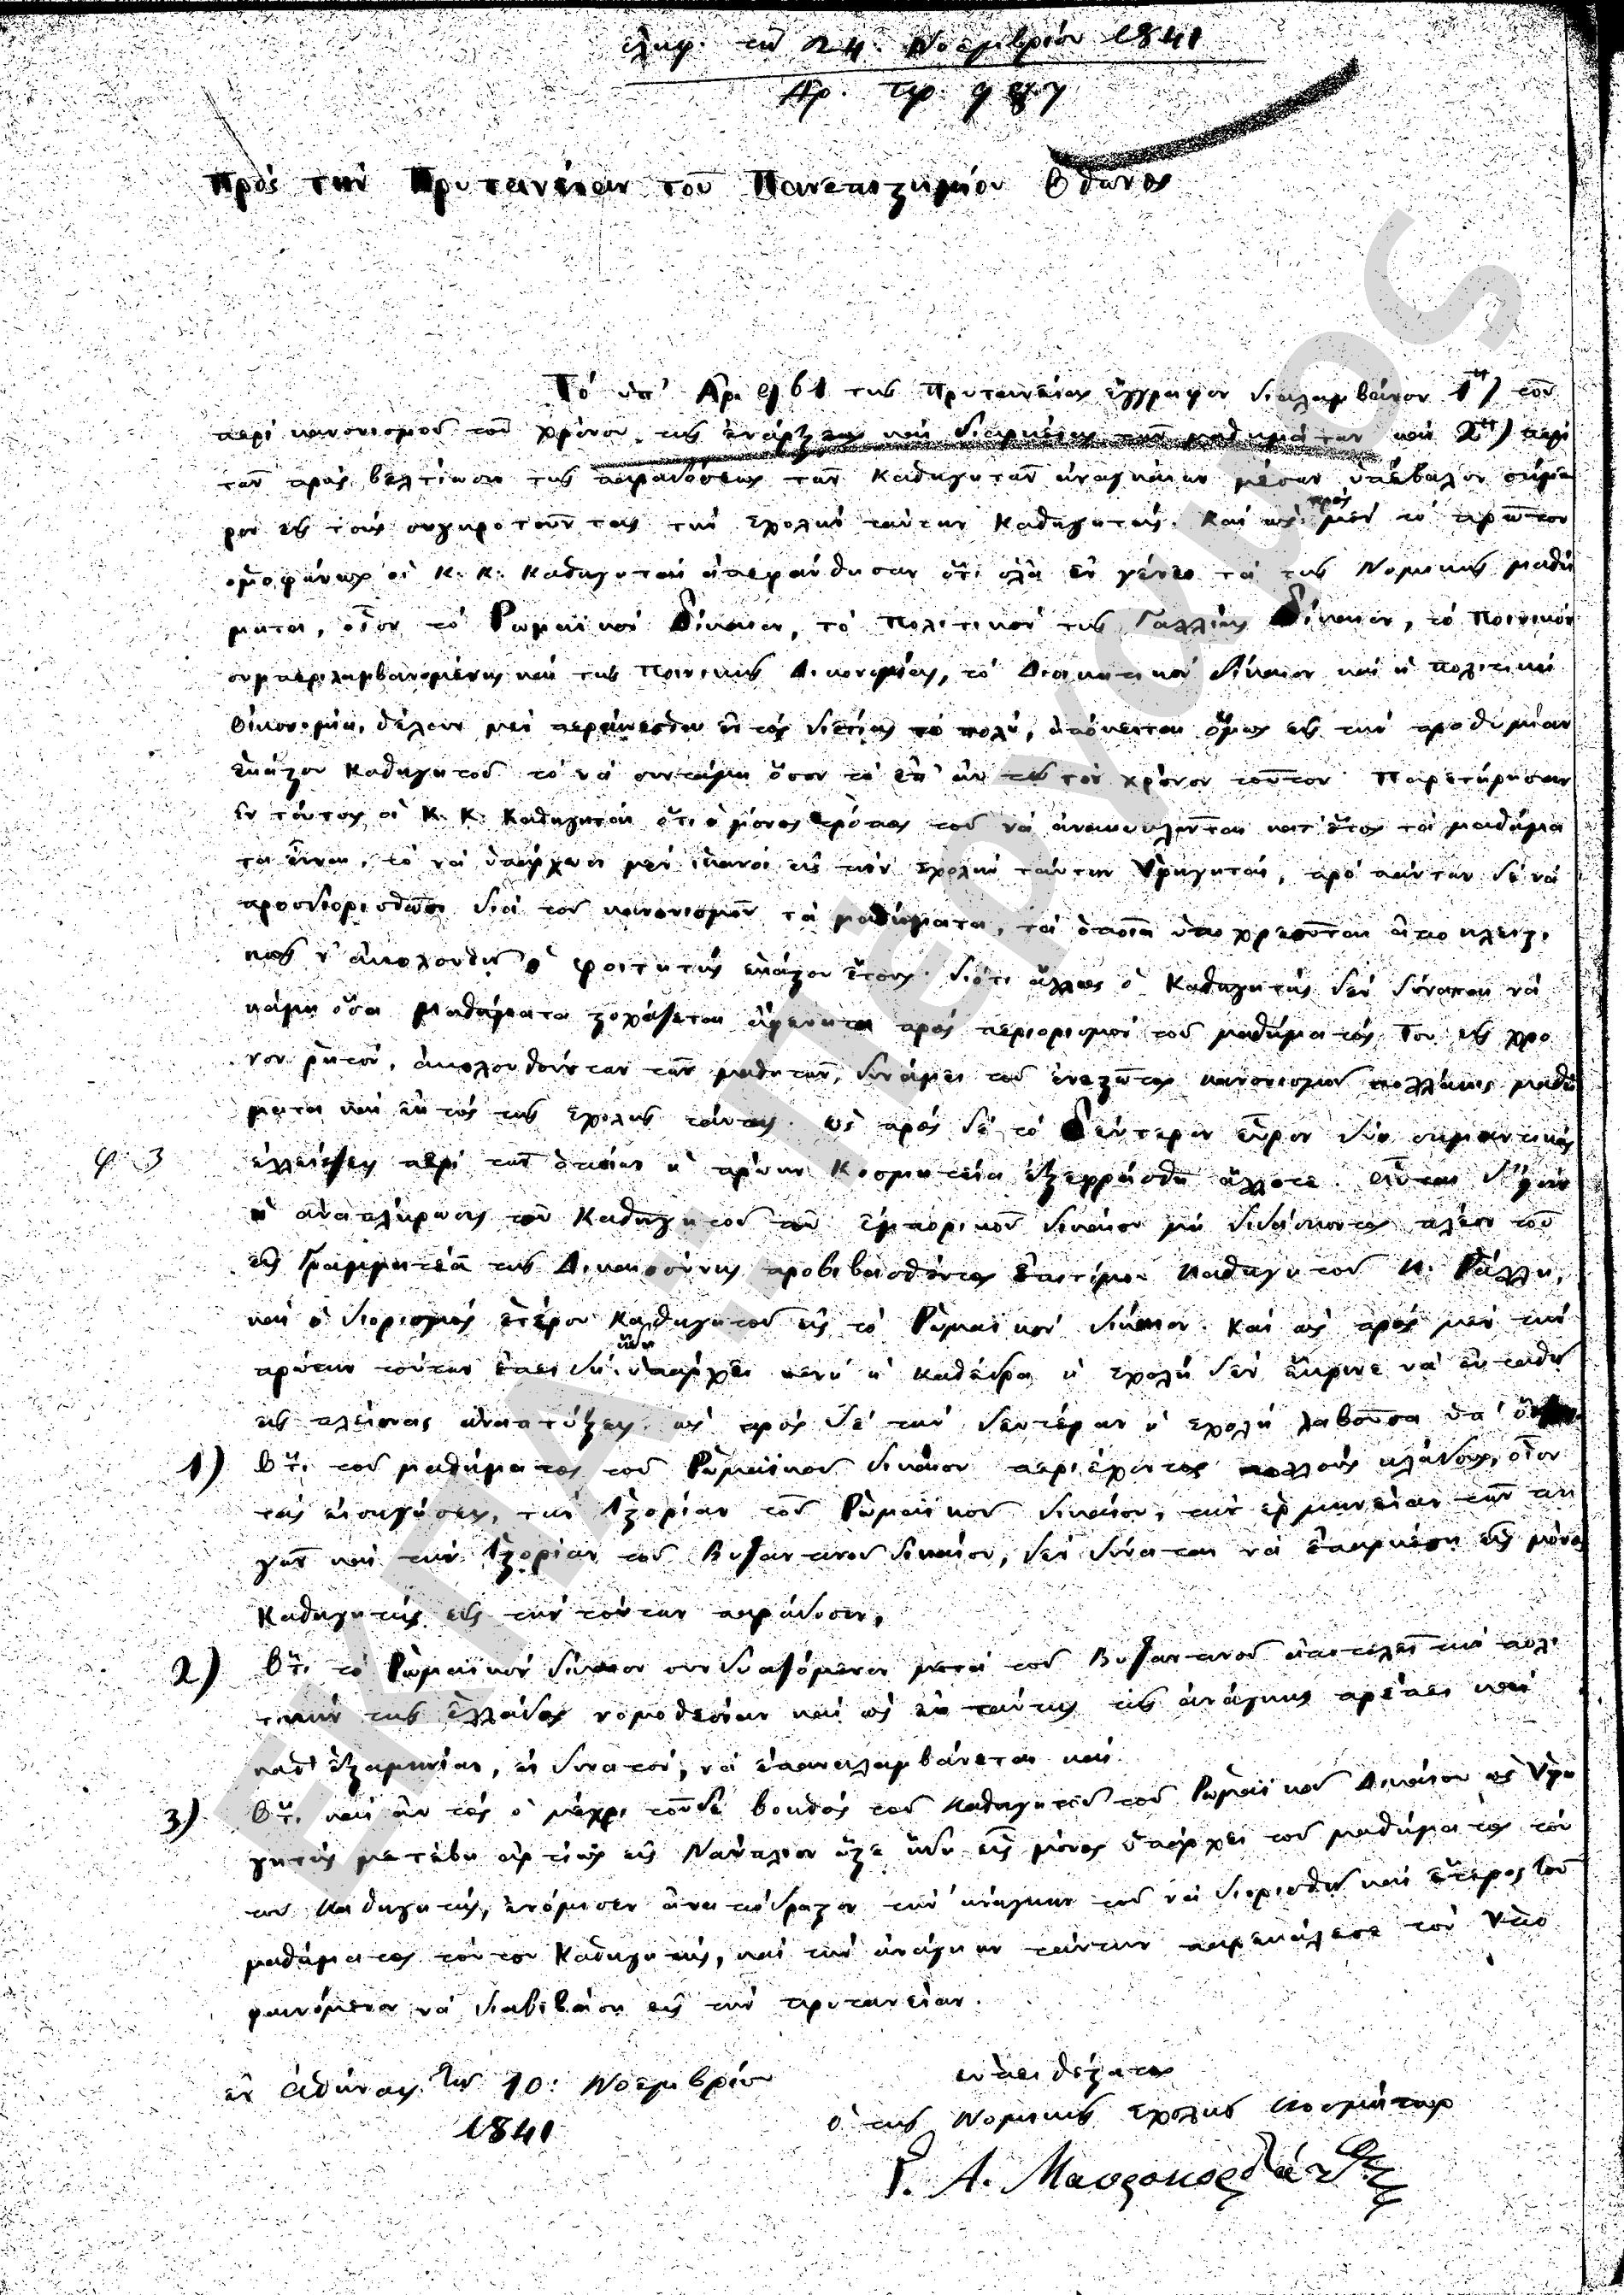 ἐλήφ. τῇ 24 Νοεμβρίου 1841
Αρ. πρ. 987
Πρὸς τὴν Πρυτανείαν τοῦ Πανεπιστημίου Ὄθωνος
Τὸ ὑπ' Αρ. 961 τῆς Πρυτανείας ἔγγραφον διαλαμβάνον 1ον) τοῦ
περὶ κανονισμοῦ τοῦ χρόνου τῆς ἐνάρξεως καὶ διαρκείας τῶν μαθημάτων καὶ 2ον) περὶ
τῶν πρὸς βελτίωσιν τῆς παραδόσεως τῶν Καθηγητῶν ἀναγκαίων μέσων ὑπέβαλον σήμε
ρον εἰς τοὺς συγκροτοῦντας τὴν Σχολὴν ταύτην Καθηγητάς. Καὶ ὡς πρὸς μὲν τὸ πρῶτον
ὁμοφώνως οἱ Κ. Κ. Καθηγηταὶ ἀπεφάνθησαν ὅτι ὅλα ἐν γένει τὰ τῆς Νομικῆς μαθή
ματα, οἷον τὸ Ρωμαϊκὸν Δίκαιον, τὸ Πολιτικὸν τῆς Γαλλίας Δίκαιον, τὸ Ποινικὸν
συμπεριλαμβανομένης καὶ τῆς Ποινικῆς Δικονομίας, τὸ Διοικητικὸν δίκαιον καὶ ἡ πολιτικὴ
Οἰκονομία, θέλουν μὲν περαίνεσθαι ἐντὸς διετίας τὸ πολύ, ἀπόκειται ὅμως εἰς τὴν προθυμίαν
ἑκάστου Καθηγητοῦ τὸ νὰ συντάμῃ ὅσον τὸ ἐπ' αὐτῷ τὸν χρόνον τοῦτον. Παρετήρησαν
ἐν τούτοις οἱ Κ. Κ. Καθηγηταὶ ὅτι ὁ μόνος τρόπος τοῦ νὰ ἀνακυκλῶνται κατ' ἔτος τὰ μαθήμα
τα εἶναι, τὸ νὰ ὑπάρχωσι μὲν ἱκανοὶ εἰς τὴν Σχολὴν ταύτην Ὑφηγηταί, πρὸ πάντων δὲ νὰ
προσδιορισθῶσι διὰ τοῦ κανονισμοῦ τὰ μαθήματα, τὰ ὁποῖα ὑποχρεοῦται ἀποκλειστι
κῶς ν' ἀκολουθῇ ὁ φοιτητὴς ἑκάστου ἔτους· διότι ἄλλως ὁ Καθηγητὴς δὲν δύναται νὰ
κάμῃ ὅσα μαθήματα στοχάζεται ἀρκετὰ πρὸς περιορισμὸν τοῦ μαθήματός του εἰς χρό
νον ῥητόν, ἀκολουθούντων τῶν μαθητῶν, δυνάμει τοῦ ἐνεστῶτος κανονισμοῦ πολλάκις μαθή
ματα καὶ ἐκτὸς τῆς Σχολῆς ταύτης. ὡς πρὸς δὲ τὸ δεύτερον εὗρον δύο σημαντικὰς
φ. 3
ἐλλείψεις περὶ τῶν ὁποίων ἡ πρώην Κοσμητεία ἐξεφράσθη ἄλλοτε. αὗται δ' ἦσαν
ἡ ἀναπλήρωσις τοῦ Καθηγητοῦ τοῦ ἐμπορικοῦ δικαίου μὴ διδάσκοντος πλέον τοῦ
εἰς Γραμματέα τῆς Δικαιοσύνης προβιβασθέντος ἐπιτίμου Καθηγητοῦ Κ. Ράλλη,
καὶ ὁ διορισμὸς ἑτέρου Καθηγητοῦ εἰς τὸ Ρωμαϊκὸν δίκαιον. Καὶ ὡς πρὸς μὲν τὴν
πρώτην τούτων ἐπειδὴ ἤδη ὑπάρχει κενὴ ἡ Καθέδρα ἡ Σχολὴ δὲν ἔκρινε νὰ ἐκταθῇ
εἰς πλείονας ἀναπτύξεις. ὡς πρὸς δὲ τὴν δευτέραν ἡ σχολὴ λαβοῦσα ὑπ' ὄψιν
1) Ὅτι τοῦ μαθήματος τοῦ Ρωμαϊκοῦ δικαίου περιέχοντος πολλοὺς κλάδους, οἷον
τὰς εἰσηγήσεις, τὴν Ἱστορίαν τοῦ Ρωμαϊκοῦ δικαίου, τὴν ἑρμηνείαν τῶν πη
γῶν καὶ τὴν Ἱστορίαν τοῦ Βυζαντινοῦ δικαίου, δὲν δύναται νὰ ἐπαρκέσῃ εἷς μόνος
Καθηγητὴς εἰς τὴν τούτων παράδοσιν,
2) Ὅτι τὸ Ρωμαϊκὸν δίκαιον συνδυαζόμενον μετὰ τοῦ Βυζαντινοῦ ἀποτελεῖ τὴν πολι
τικὴν τῆς Ἑλλάδος νομοθεσίαν καὶ ὡς ἐκ ταύτης τῆς ἀνάγκης πρέπει καὶ
καθ' ἑξαμηνίαν, εἰ δυνατόν, νὰ ἐπαναλαμβάνεται καὶ
3) Ὅτι καὶ αὐτὸς ὁ μέχρι τοῦδε βοηθὸς τοῦ Καθηγητοῦ τοῦ Ρωμαϊκοῦ Δικαίου ὡς Ὑφη
γητὴς μετέβη ἀρτίως εἰς Ναύπλιον ὥστε ἤδη εἷς μόνος ὑπάρχει τοῦ μαθήματος τού
του Καθηγητής, ἐνόμισεν ἀναπόδραστον τὴν ἀνάγκην τοῦ νὰ διορισθῇ καὶ ἕτερος τοῦ
μαθήματος τούτου Καθηγητής, καὶ τὴν ἀνάγκην ταύτην παρεκάλεσε τὸν Ὑπο
φαινόμενον νὰ διαβιβάσῃ εἰς τὴν πρυτανείαν.
ἐν Ἀθήναις τῇ 10: Νοεμβρίου
1841
εὐπειθέστατος
ὁ τῆς Νομικῆς Σχολῆς Κοσμήτωρ
Γ. Α. Μαυροκορδάτος